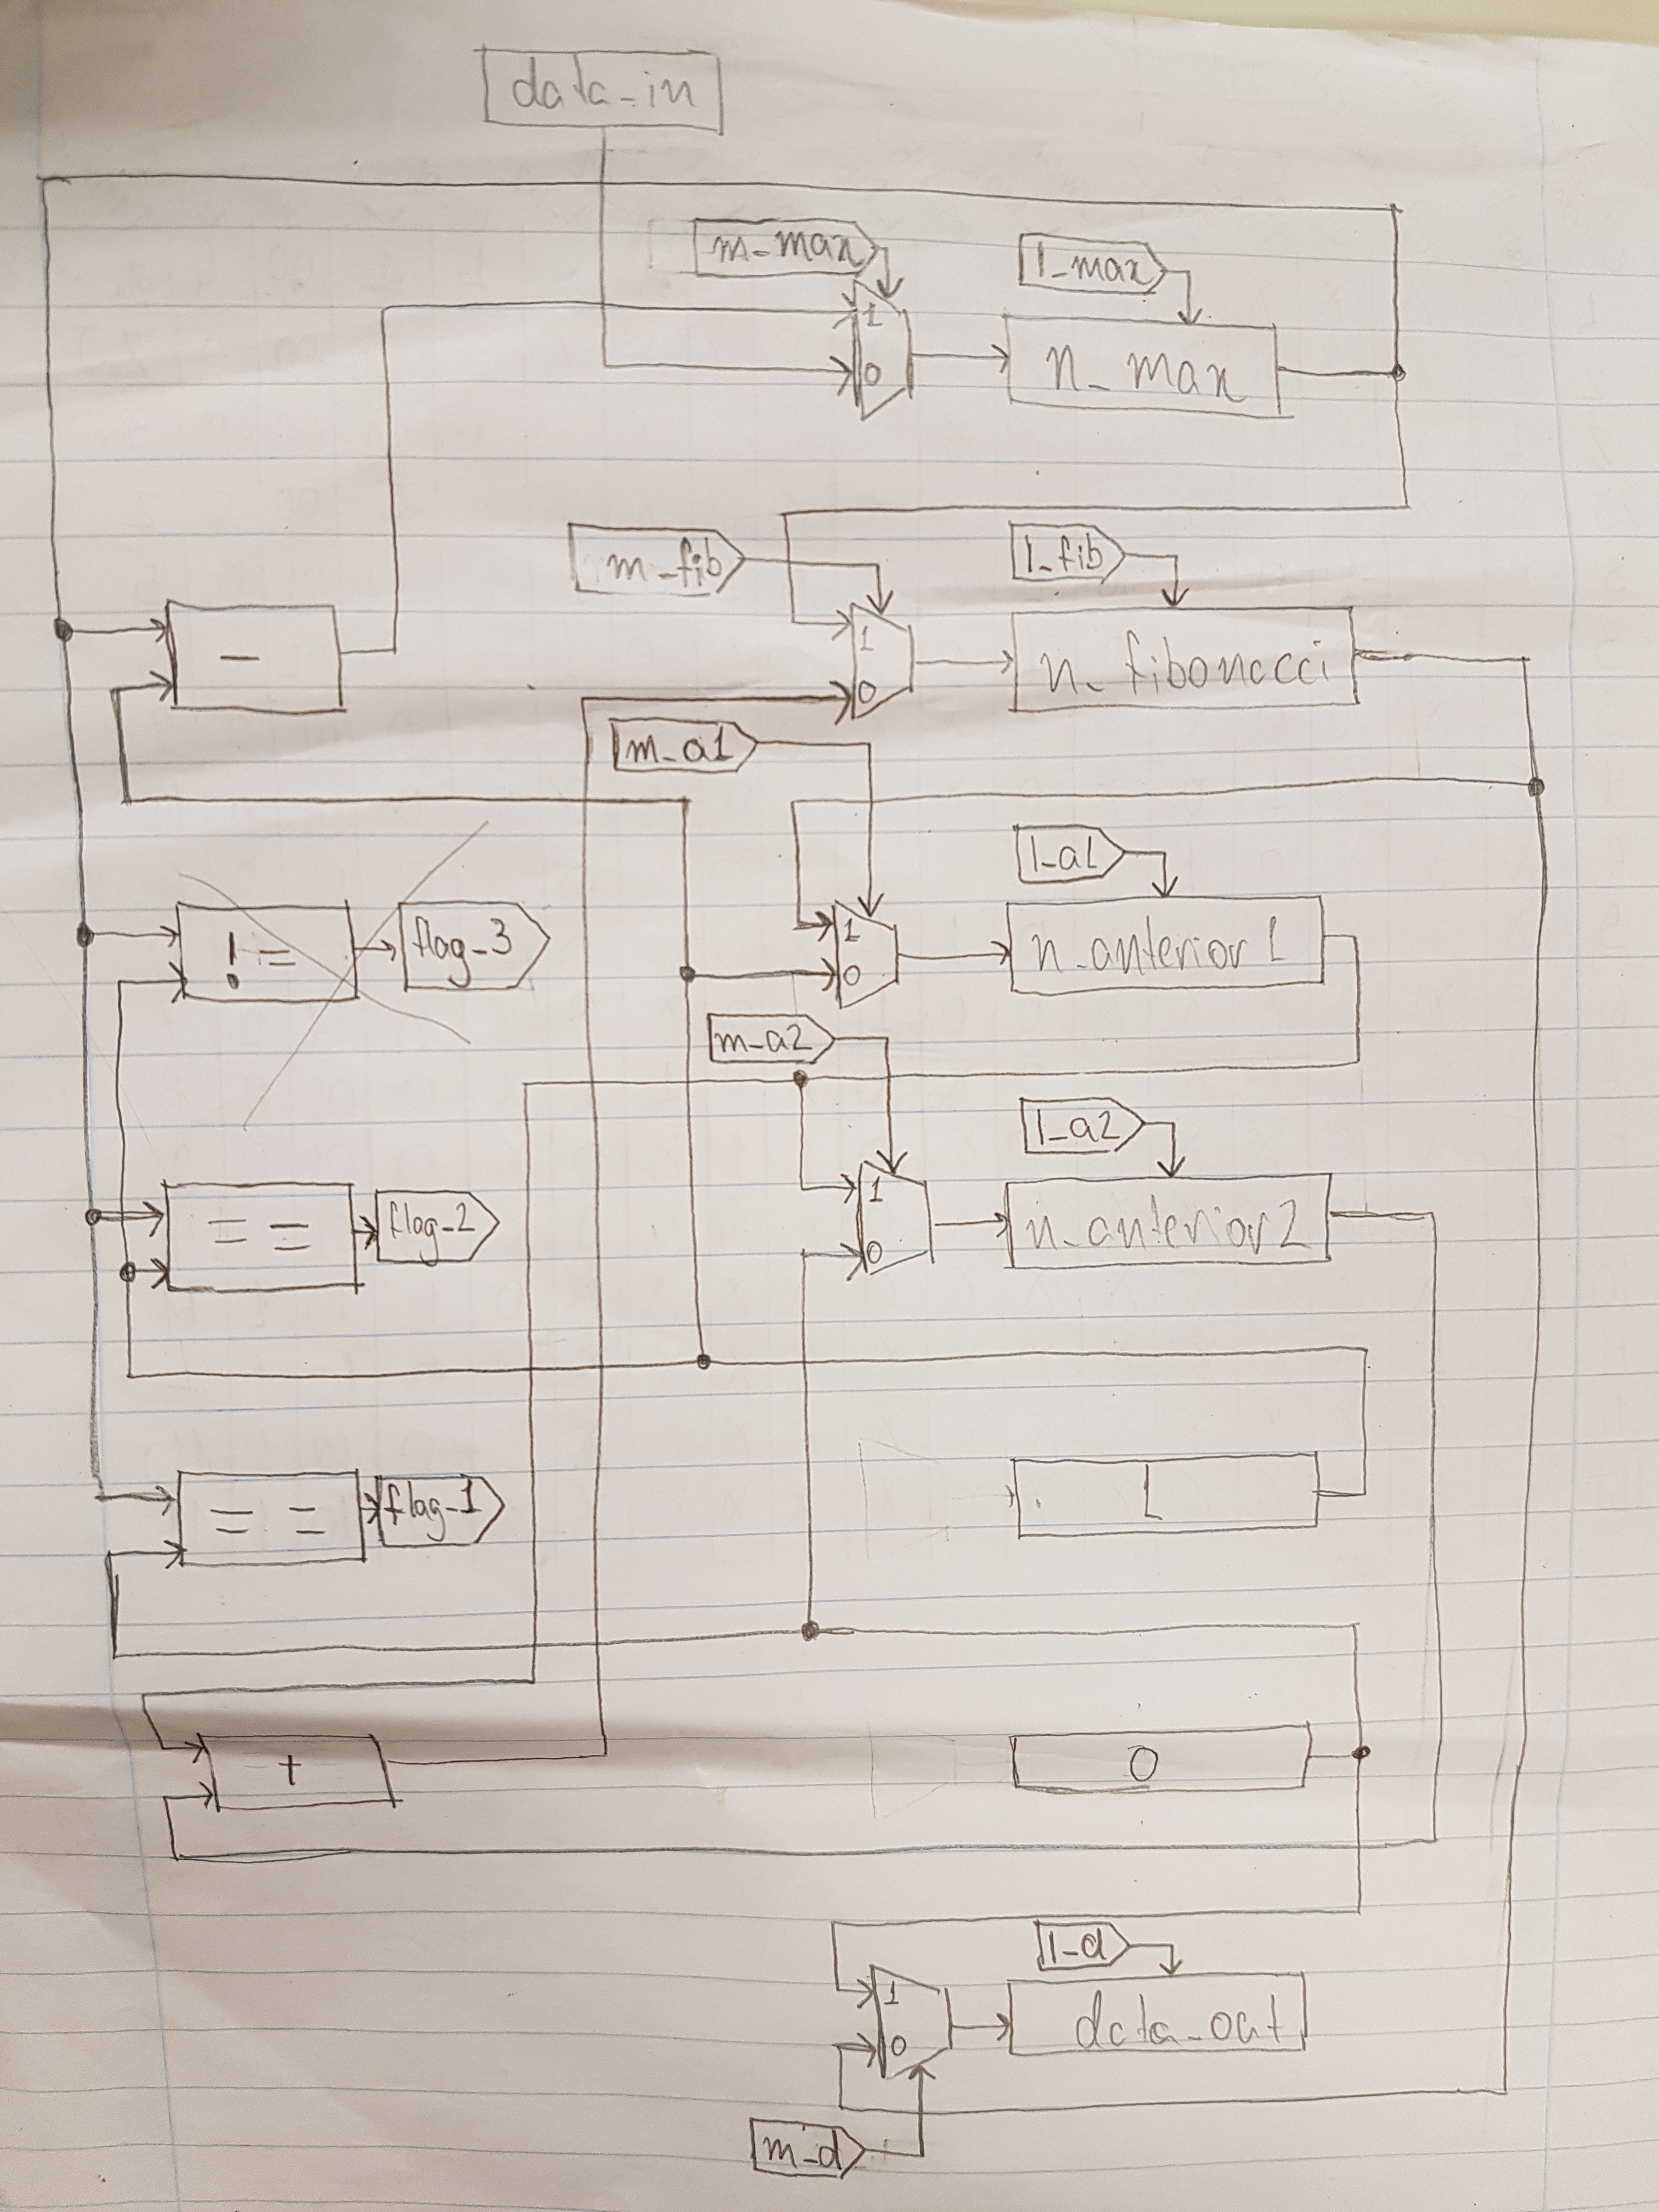 data_in
m_max
l_max
1
0
n_max
m_fib
l_fib
1
0
n_fibonacci
-
m_a1
l_a1
1
0
n_anterior 1
!=
flag_3
m_a2
l_a2
1
0
n_anterior 2
==
flag_2
1
==
flag_1
+
0
l_d
1
0
data_out
m_d